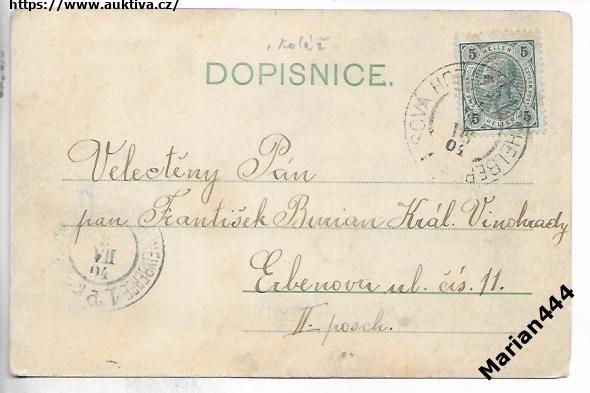 https://www.auktiva.cz/
koláž
DOPISNICE.
5 HELLER 5
5 HELLER 5
Velectěny Pán
pan František Burian Král. Vinohrady
Erbenova ul. čís. 11.
II. posch.
Marian444